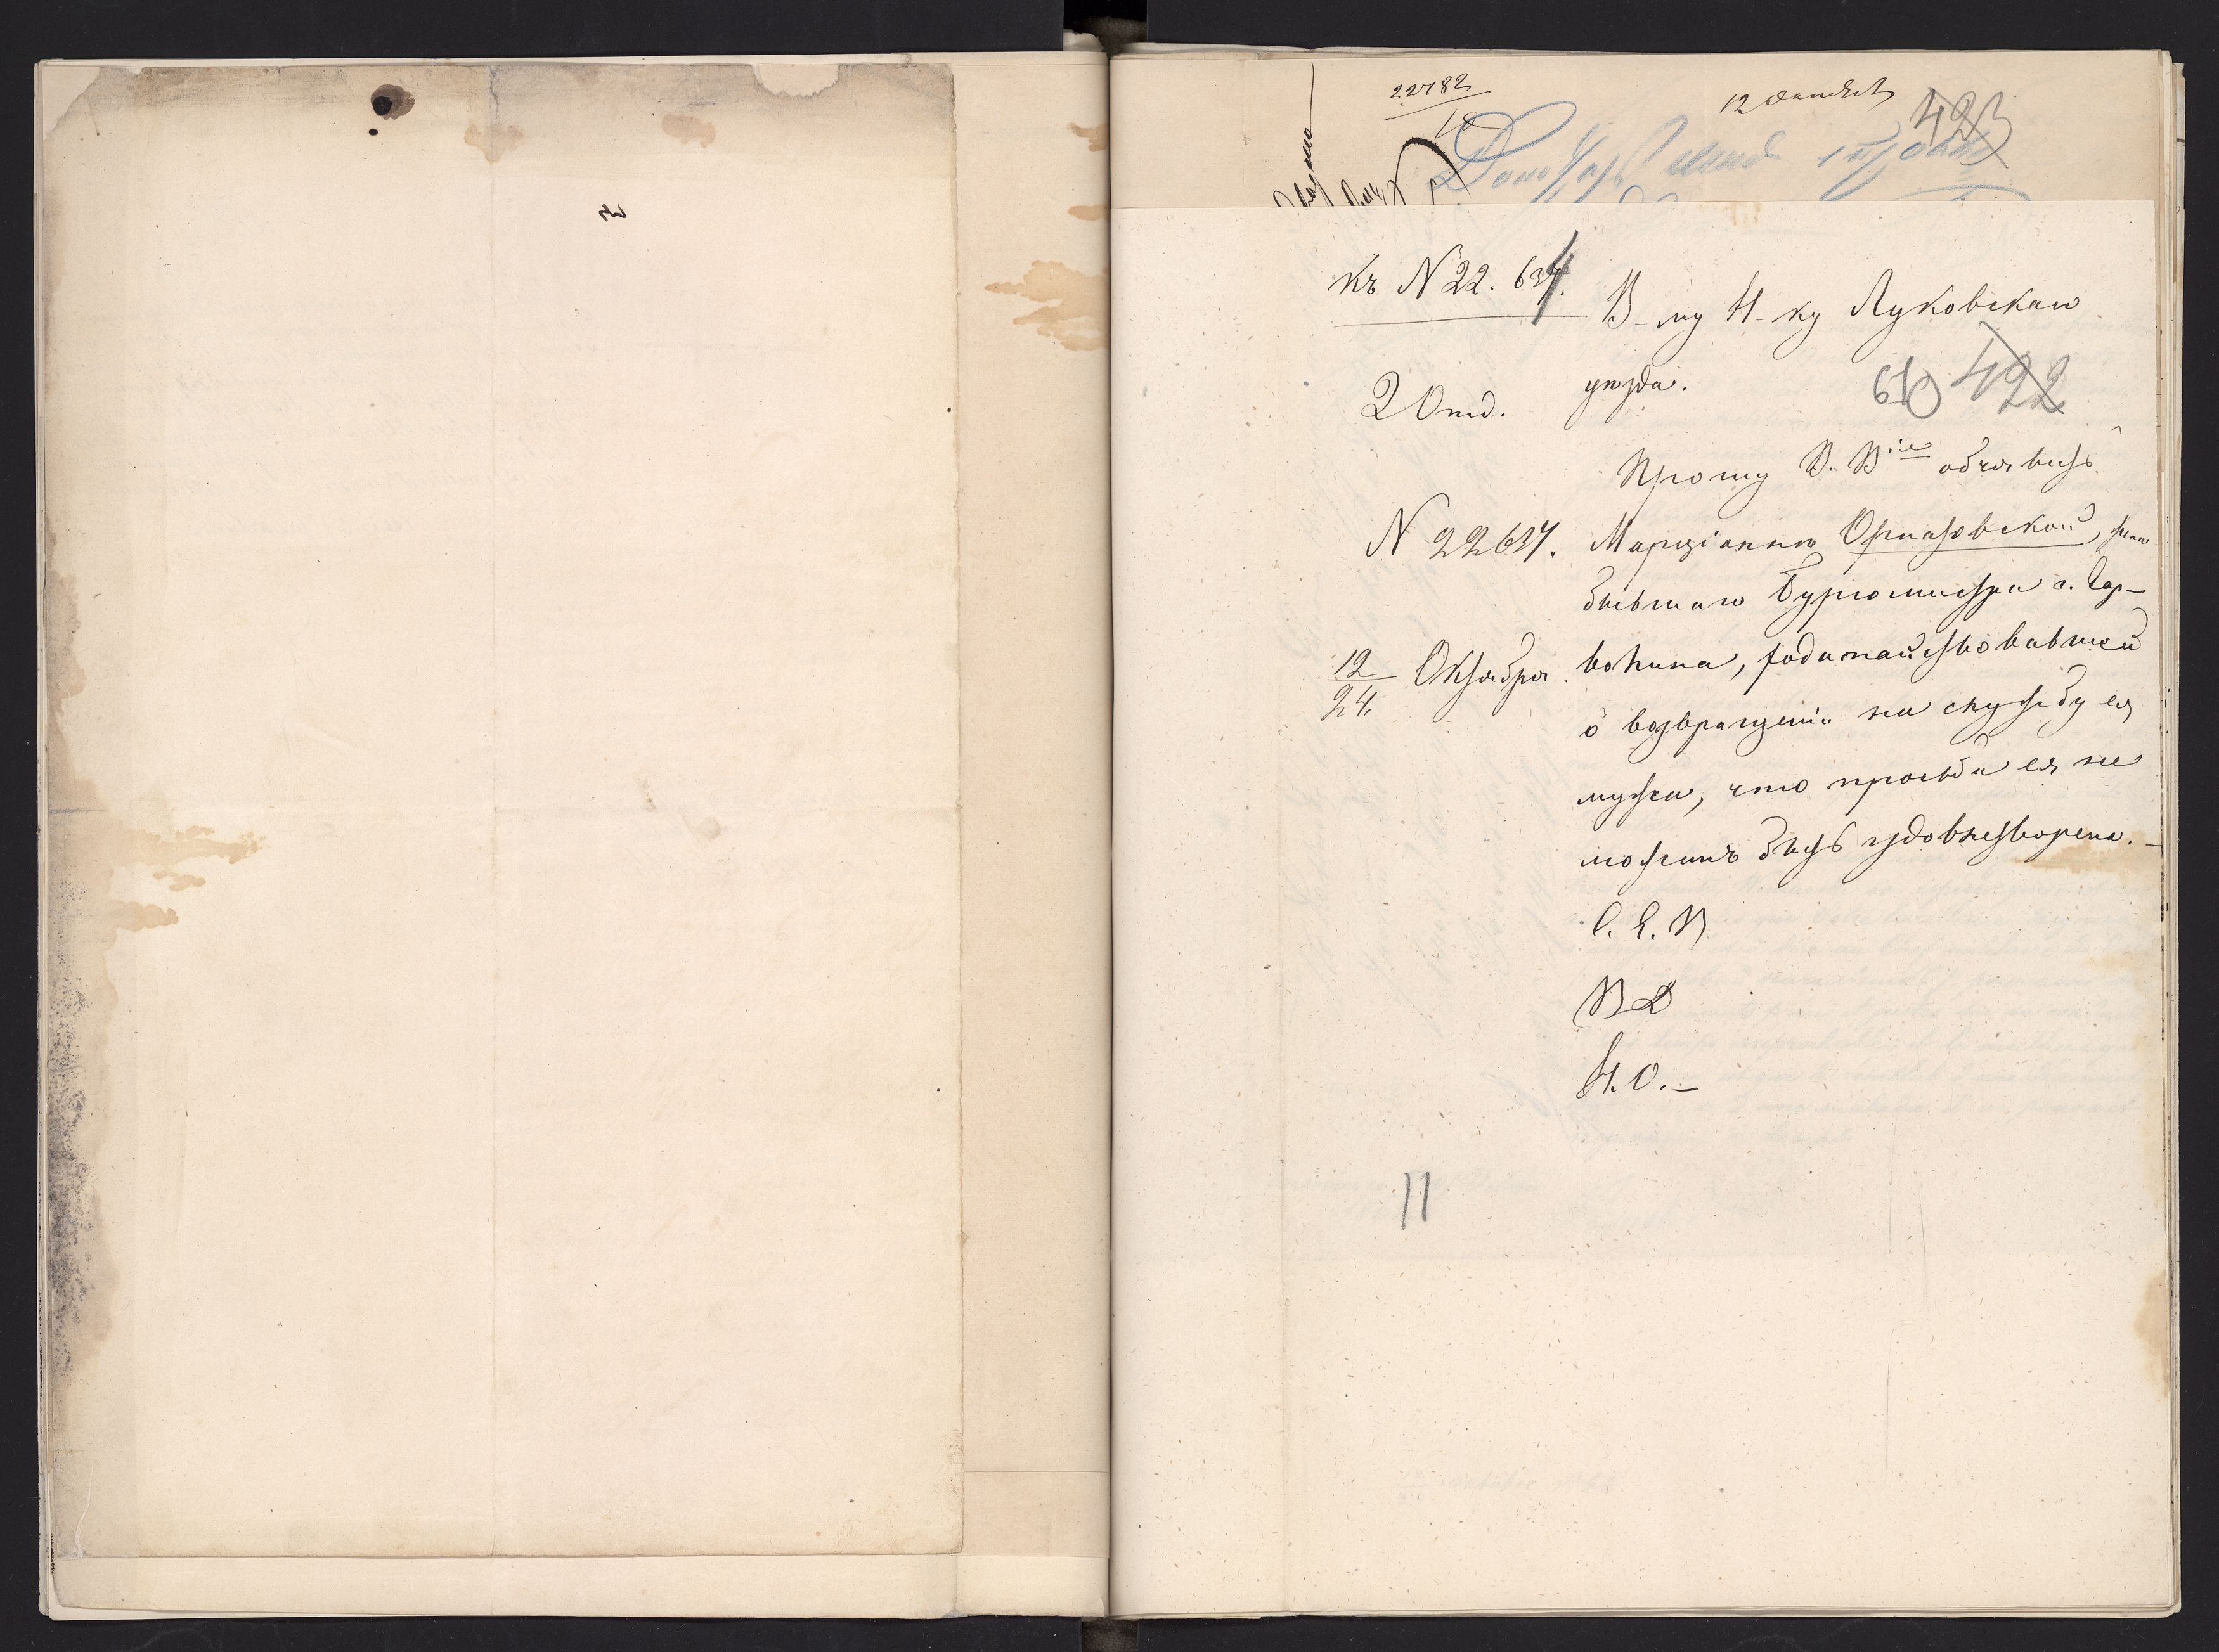 22782
12 Октября
423
къ N 22.634.
В-му Н-ку Луковскаго
уѣзда.
610 422
2 Отд.
Прошу В. В-іе объявить
N 22634.
Марціаннѣ Орпазовской, женѣ
бывшаго Бургомистра г. Сар-
12/24. Октября.
, ходатайствовавшей
о возвращеніи на службу ея
мужа, что просьба ея не
можетъ быть удовлетворена. —
С. Е. В
В Д
Н. О. —
11